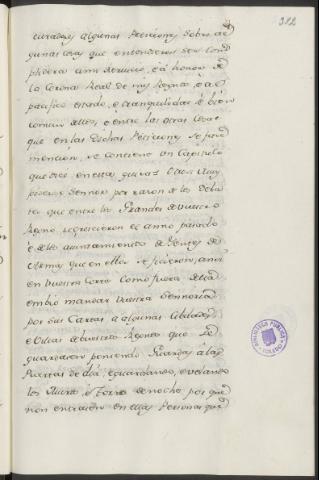 312
curadores algunas Peticiones sobre al
gunas cosas que entendieron ser Com
plideras á mi servicio, é á honor de
la Corona Real de mis Reynos, é a el
pacifico estado, é tranquilidad é bien
comun dellos, e entre las otras cosas
que en las dichas Peticiones se face
mencion, se contiene un Capitulo
que dice en esta guisa: Otrosi muy
poderoso Sennor por razon de los deba
tes que entre los Grandes de vuestro
Reyno se recrecieron el anno pasado
é de los ayuntamientos de Gentes de
Armas que en ellos se ficieron, ansi
en vuestra Corte como fuera della
embió mandar vuestra Sennoria
por sus Cartas a algunas Cibdades
e Villas de vuestros Regnos que se
guardasen poniendo Guardas á las
Puertas de dia, e guardando, e velando
los Muros, é Torres de noche, por que
non entrasen en ellas Personas que
BIBLIOTECA PUBLICA
TOLEDO